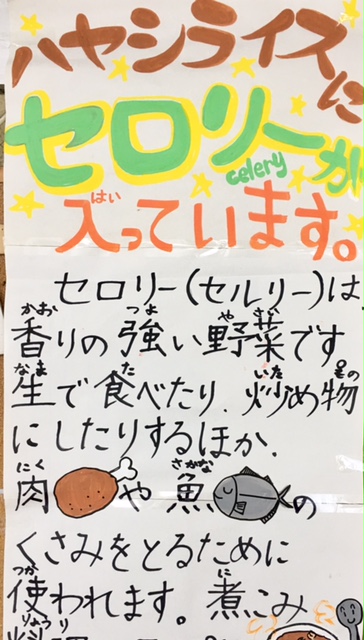 ハヤシライスに
セロリーが
celery
はい
入っています。
セロリー(セルリー)は
かお つよ やさい
香りの強い野菜です
なま た いた もの
生で食べたり、炒め物
にしたりするほか、
にく さかな
肉や魚の
くさみをとるために
つか に
使われます。煮こみ
りょうり
料理